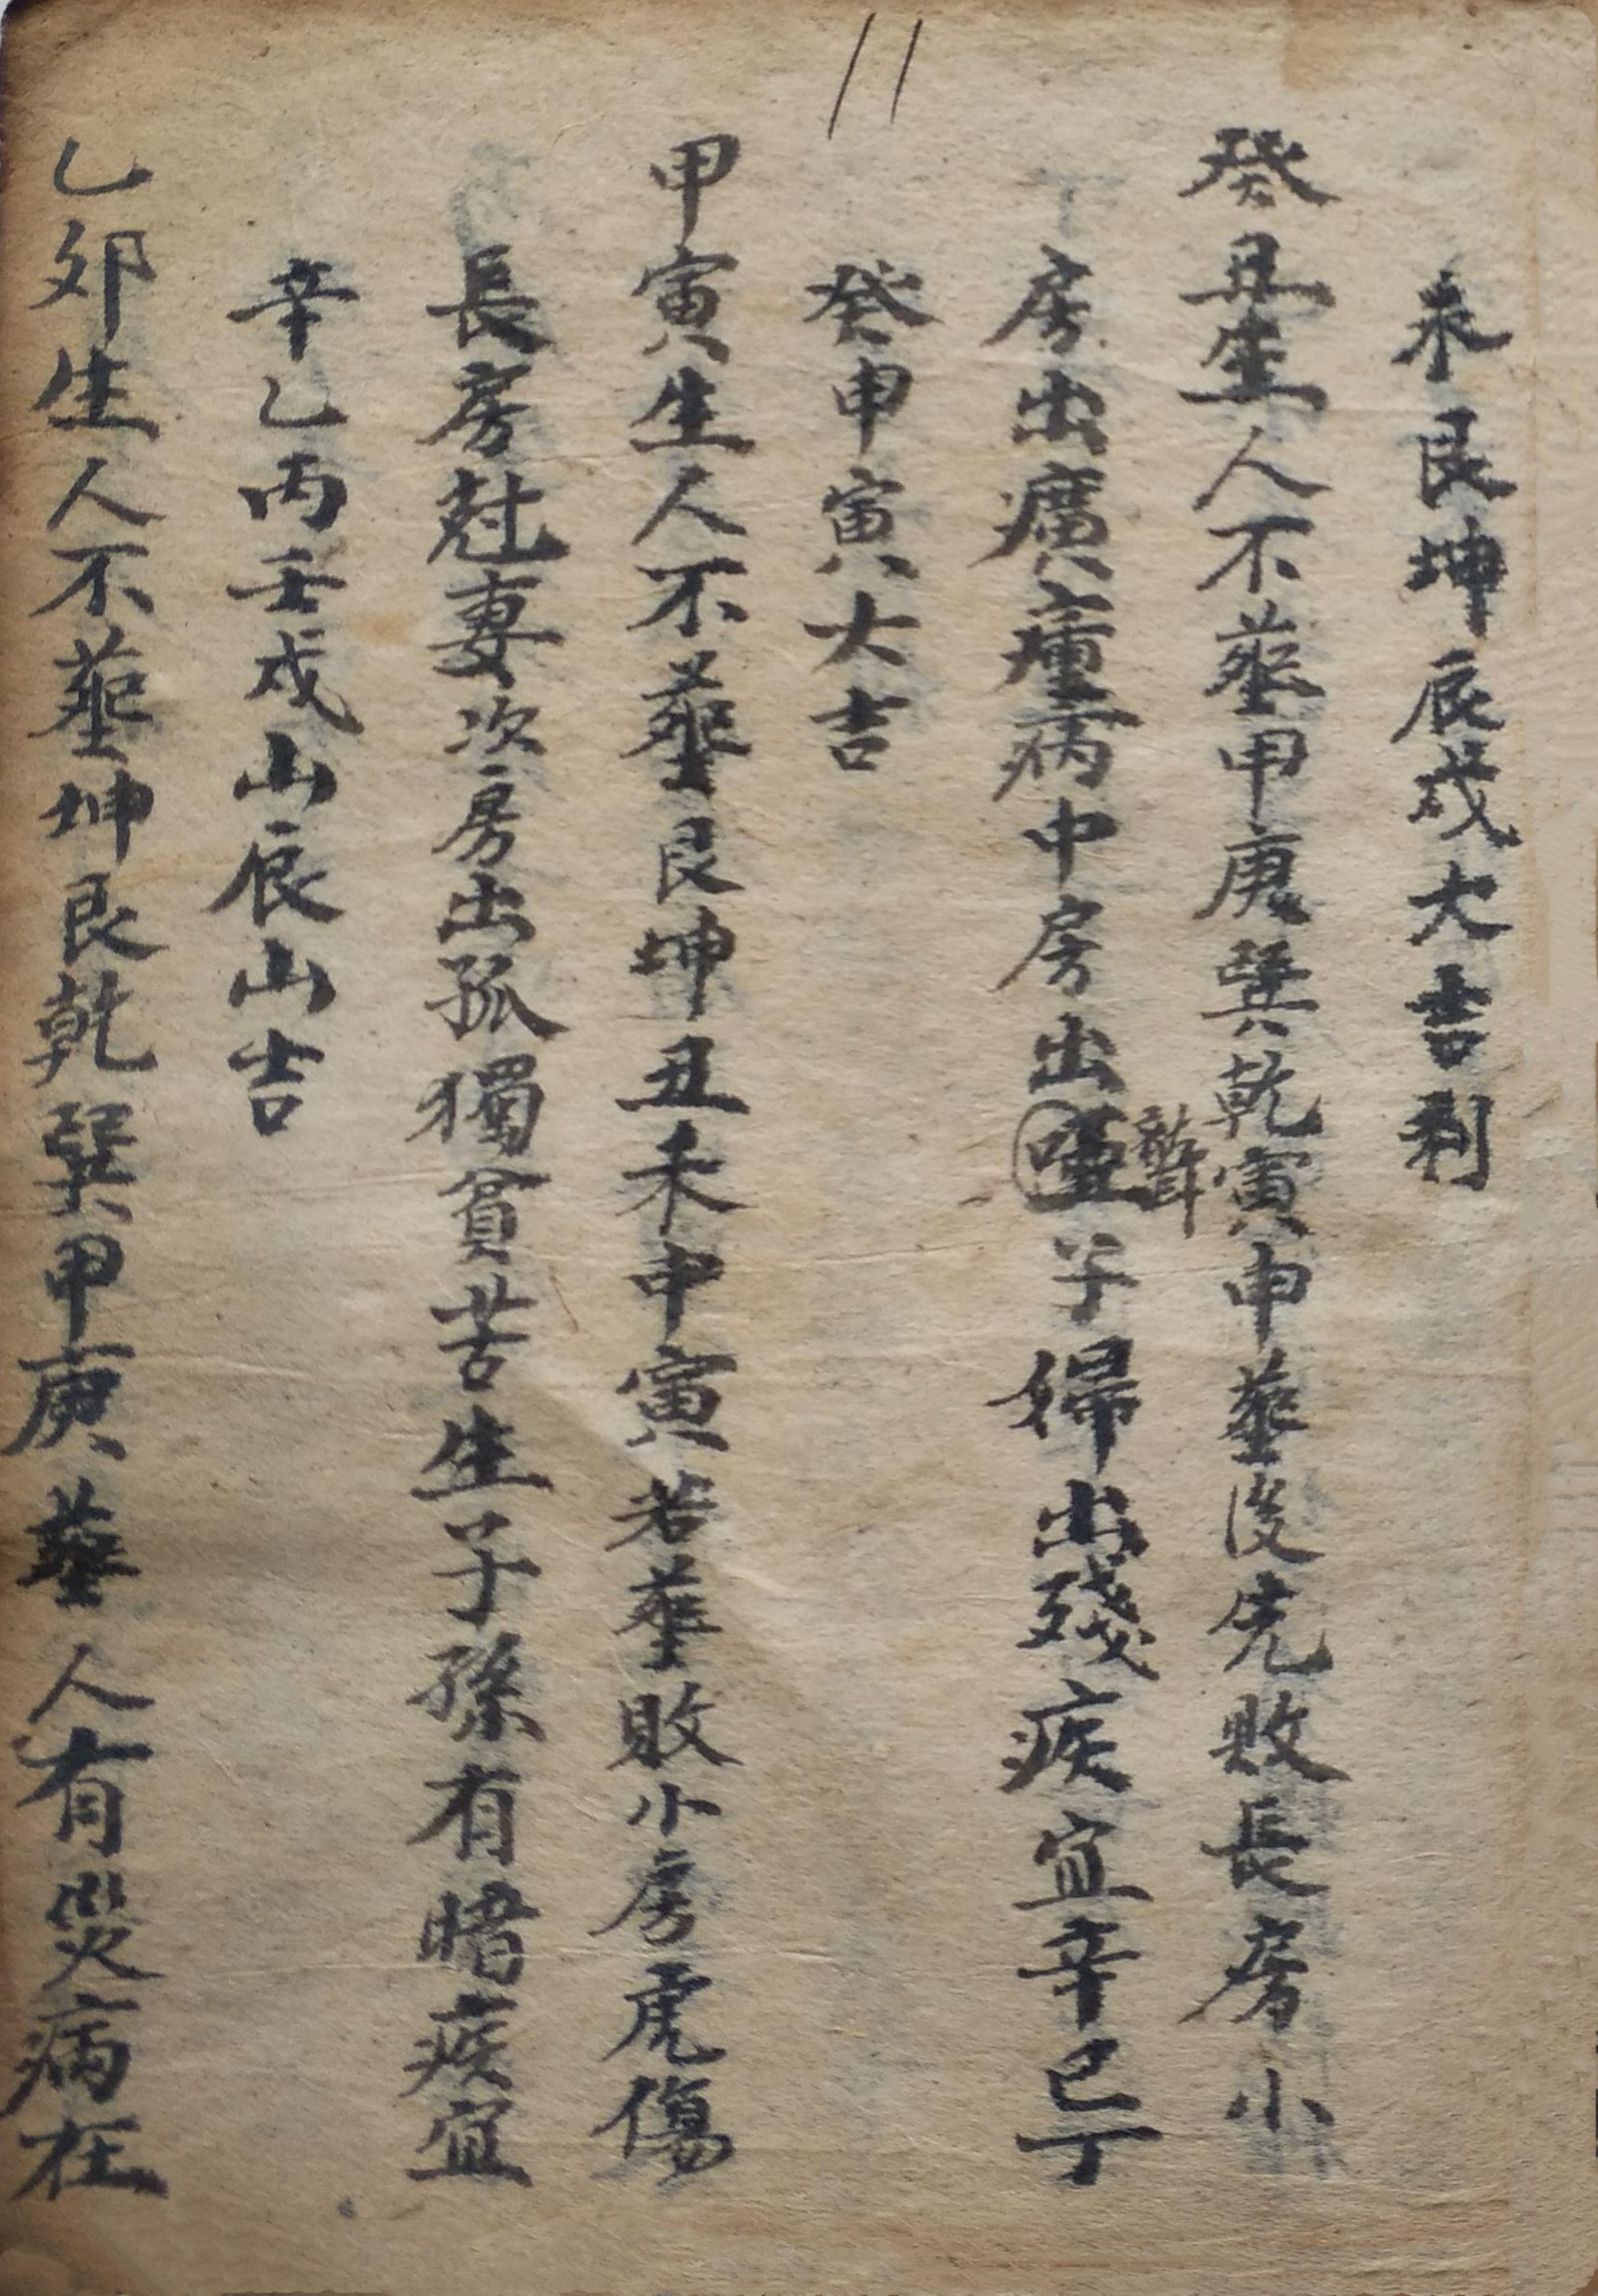 11
未艮坤辰戌大吉利
癸丑生人不葬甲庚巽乾寅申葬後先敗長房小
房出癀瘇病中房出啞子婦出殘疾宜辛巳丁
癸申寅大吉
甲寅生人不葬艮坤丑未申寅若葬敗小房虎傷
長房尅妻次房出孤獨貧苦生子孫有暗疾宜
辛乙丙壬戌山辰山吉
乙卯生人不葬坤艮乾巽甲庚葬人有災病在